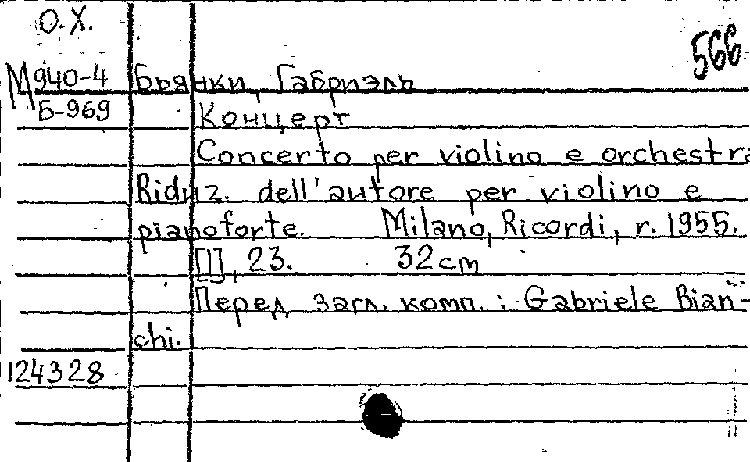 О.Х.
566
М940-4 Бьянки, Габриэль
Б-969 Концерт
Concerto per violino e orchestra
Riduz. dell'autore per violino e
pianoforte. Milano, Ricordi, r. 1955.
[1], 23. 32 cm
Перед загл. комп.: Gabriele Bian-
chi.
124328